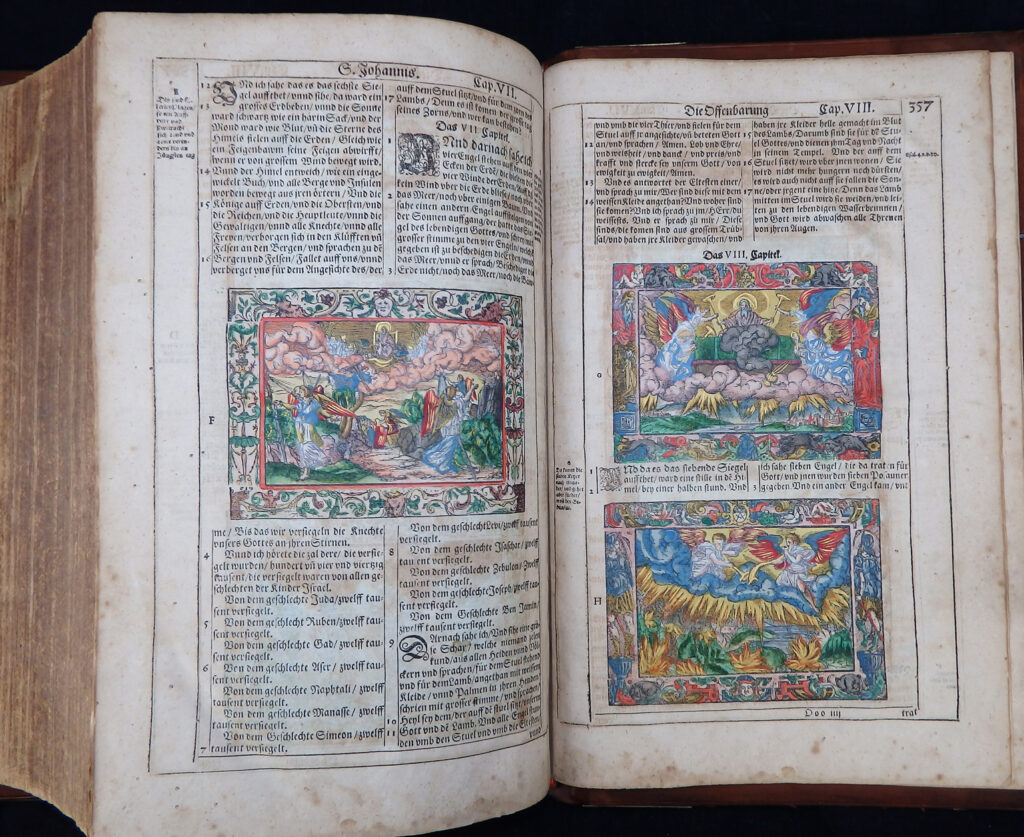 S. Johannis.
Cap. VII.
12 Vnd ich sahe das es das sechste Sie-
gel auffthet/vnnd sihe/da ward ein
13 grosses Erdbeben/vnnd die Sonne
ward schwartz wie ein härin Sack/vnd der
Mond ward wie Blut/vn̄ die Sterne des
Himels fielen auff die Erden/Gleich wie
ein Feigenbawm seine Feigen abwirfft/
wenn er von grossem Wind bewegt wird.
14 Vnnd der Himel entweich/wie ein einge-
wickelt Buch/vnd alle Berge vnd Insulen
worden bewegt aus jren örtern/Vnd die
15 Könige auff Erden/vnd die Obersten/vnd
die Reichen/vnd die Heuptleute/vnnd die
Gewaltigen/vnnd alle Knechte/vnnd alle
Freyen/verborgen sich in den Klüfften vn̄
Felsen an den Bergen/vnd sprachen zu dē
16 Bergen vnd Felsen/Fallet auff vns/vnnd
verberget vns für dem Angesichte des/der
auff dem Stuel sitzt/vnd für dem zorn des
17 Lambs/Denn es ist komen der grosse tag
seines Zorns/vnd wer kan bestehen?
Das VII Capitel
1 Vnnd darnach sahe ich
vier Engel stehen auff den vier
Ecken der Erdē/die hielten die
vier Winde der Erden/auff das
kein Wind vber die Erde bliese/noch vber
2 das Meer/noch vber einigen Bawm. Vnd
sahe einen andern Engel auffsteigen von
der Sonnen auffgang/der hatte das Sie-
gel des lebendigen Gottes/vnd schrey mit
grosser stimme zu den vier Engeln/welchen
gegeben ist zu beschedigen die Erden/vnd
das Meer/vnnd er sprach/Beschediget die
3 Erde nicht/noch das Meer/noch die Bäw-
F
me/Bis das wir versiegeln die Knechte
vnsers Gottes an jhren Stirnen.
4 Vnnd ich hörete die zal dere/die versie-
gelt wurden/hundert vn̄ vier vnd viertzig
tausent/die versiegelt waren von allen ge-
schlechten der Kinder Israel.
Von dem geschlechte Juda/zwelff tau-
sent versiegelt.
5 Von dem geschlecht Ruben/zwelff tau-
sent versiegelt.
Von dem geschlecht Gad/zwelff tau-
sent versiegelt.
6 Von dem geschlechte Aser/zwelff tau-
sent versiegelt.
Von dem geschlechte Naphtali/zwelff
tausent versiegelt.
Von dem geschlechte Manasse/zwelff
tausent versiegelt.
Von dem Geschlechte Simeon/zwelff
7 tausent versiegelt.
Von dem geschlecht Levi/zwelff tausent
versiegelt.
8 Von dem geschlechte Isaschar/zwelff
tausent versiegelt.
Von dem geschlechte Zebulon/Zwelff
tausent versiegelt.
Von dem geschlecht Joseph/zwelff tau-
sent versiegelt.
Von dem Geschlechte Ben Jamin/
zwelff tausent versiegelt.
9 Darnach sahe ich/Vnd sihe eine gros-
se Schar/welche niemand zelen
kund/aus allen Heiden vnnd Völ-
ckern vnd sprachen/für dem Stuel stehend
vnd für dem Lamb/angethan mit weissem
Kleide/vnnd Palmen in jhren Henden/
schrien mit grosser stimme/vnd sprachen/
10 Heyl sey dem/der auff dē stuel sitzt/vnserm
11 Gott vnd dē Lamb. Vnd alle Engel stun-
den vmb den Stuel vnd vmb die Eltesten/
vnnd
Die Offenbarung
Cap. VIII.
357
vnd vmb die vier Thier/vnd fielen für dem
Stuel auff jr angesichte/vn̄ beteten Gott
12 an/vnd sprachen/Amen. Lob vnd Ehre/
vnd weisheit/vnd danck/vnd preis/vnd
krafft vnd stercke sey vnserm Gott/von
ewigkeit zu ewigkeit/Amen.
13 Vnd es antwortet der Eltesten einer/
vnd sprach zu mir/Wer sind diese mit dem
14 weissen Kleide angethan? Vnd woher sind
sie komen? Vnd ich sprach zu jm/HErr/du
weissests. Vnd er sprach zu mir/Diese
sinds/die komen sind aus grossem Trüb-
sal/vnd haben jre Kleider gewaschen/vnd
haben jre Kleider helle gemacht im Blut
15 des Lambs/Darumb sind sie für dē Stu-
el Gottes/vnd dienen jhm Tag vnd Nacht
in seinem Tempel. Vnd der auff dem
16 Stuel sitzt/wird vber jnen wonen/Sie
wird nicht mehr hungern noch dürsten/
es wird auch nicht auff sie fallen die Son-
17 ne/oder jrgent eine hitze/Denn das Lamb
mitten im Stuel wird sie weiden/vnd lei-
ten zu den lebendigen Wasserbrunnen/
vnd Gott wird abwaschen alle Threnen
von jhren Augen.
Das VIII. Capitel.
G
1 Vnd da es das siebende Siegel
auffthet/ward eine stille in dē Hi-
2 mel/bey einer halben stund. Vnd
ich sahe sieben Engel/die da traten für
Gott/vnd jnen wurden sieben Posaunen
3 gegeben. Vnd ein ander Engel kam/vnd
H
Ooo iiij
trat